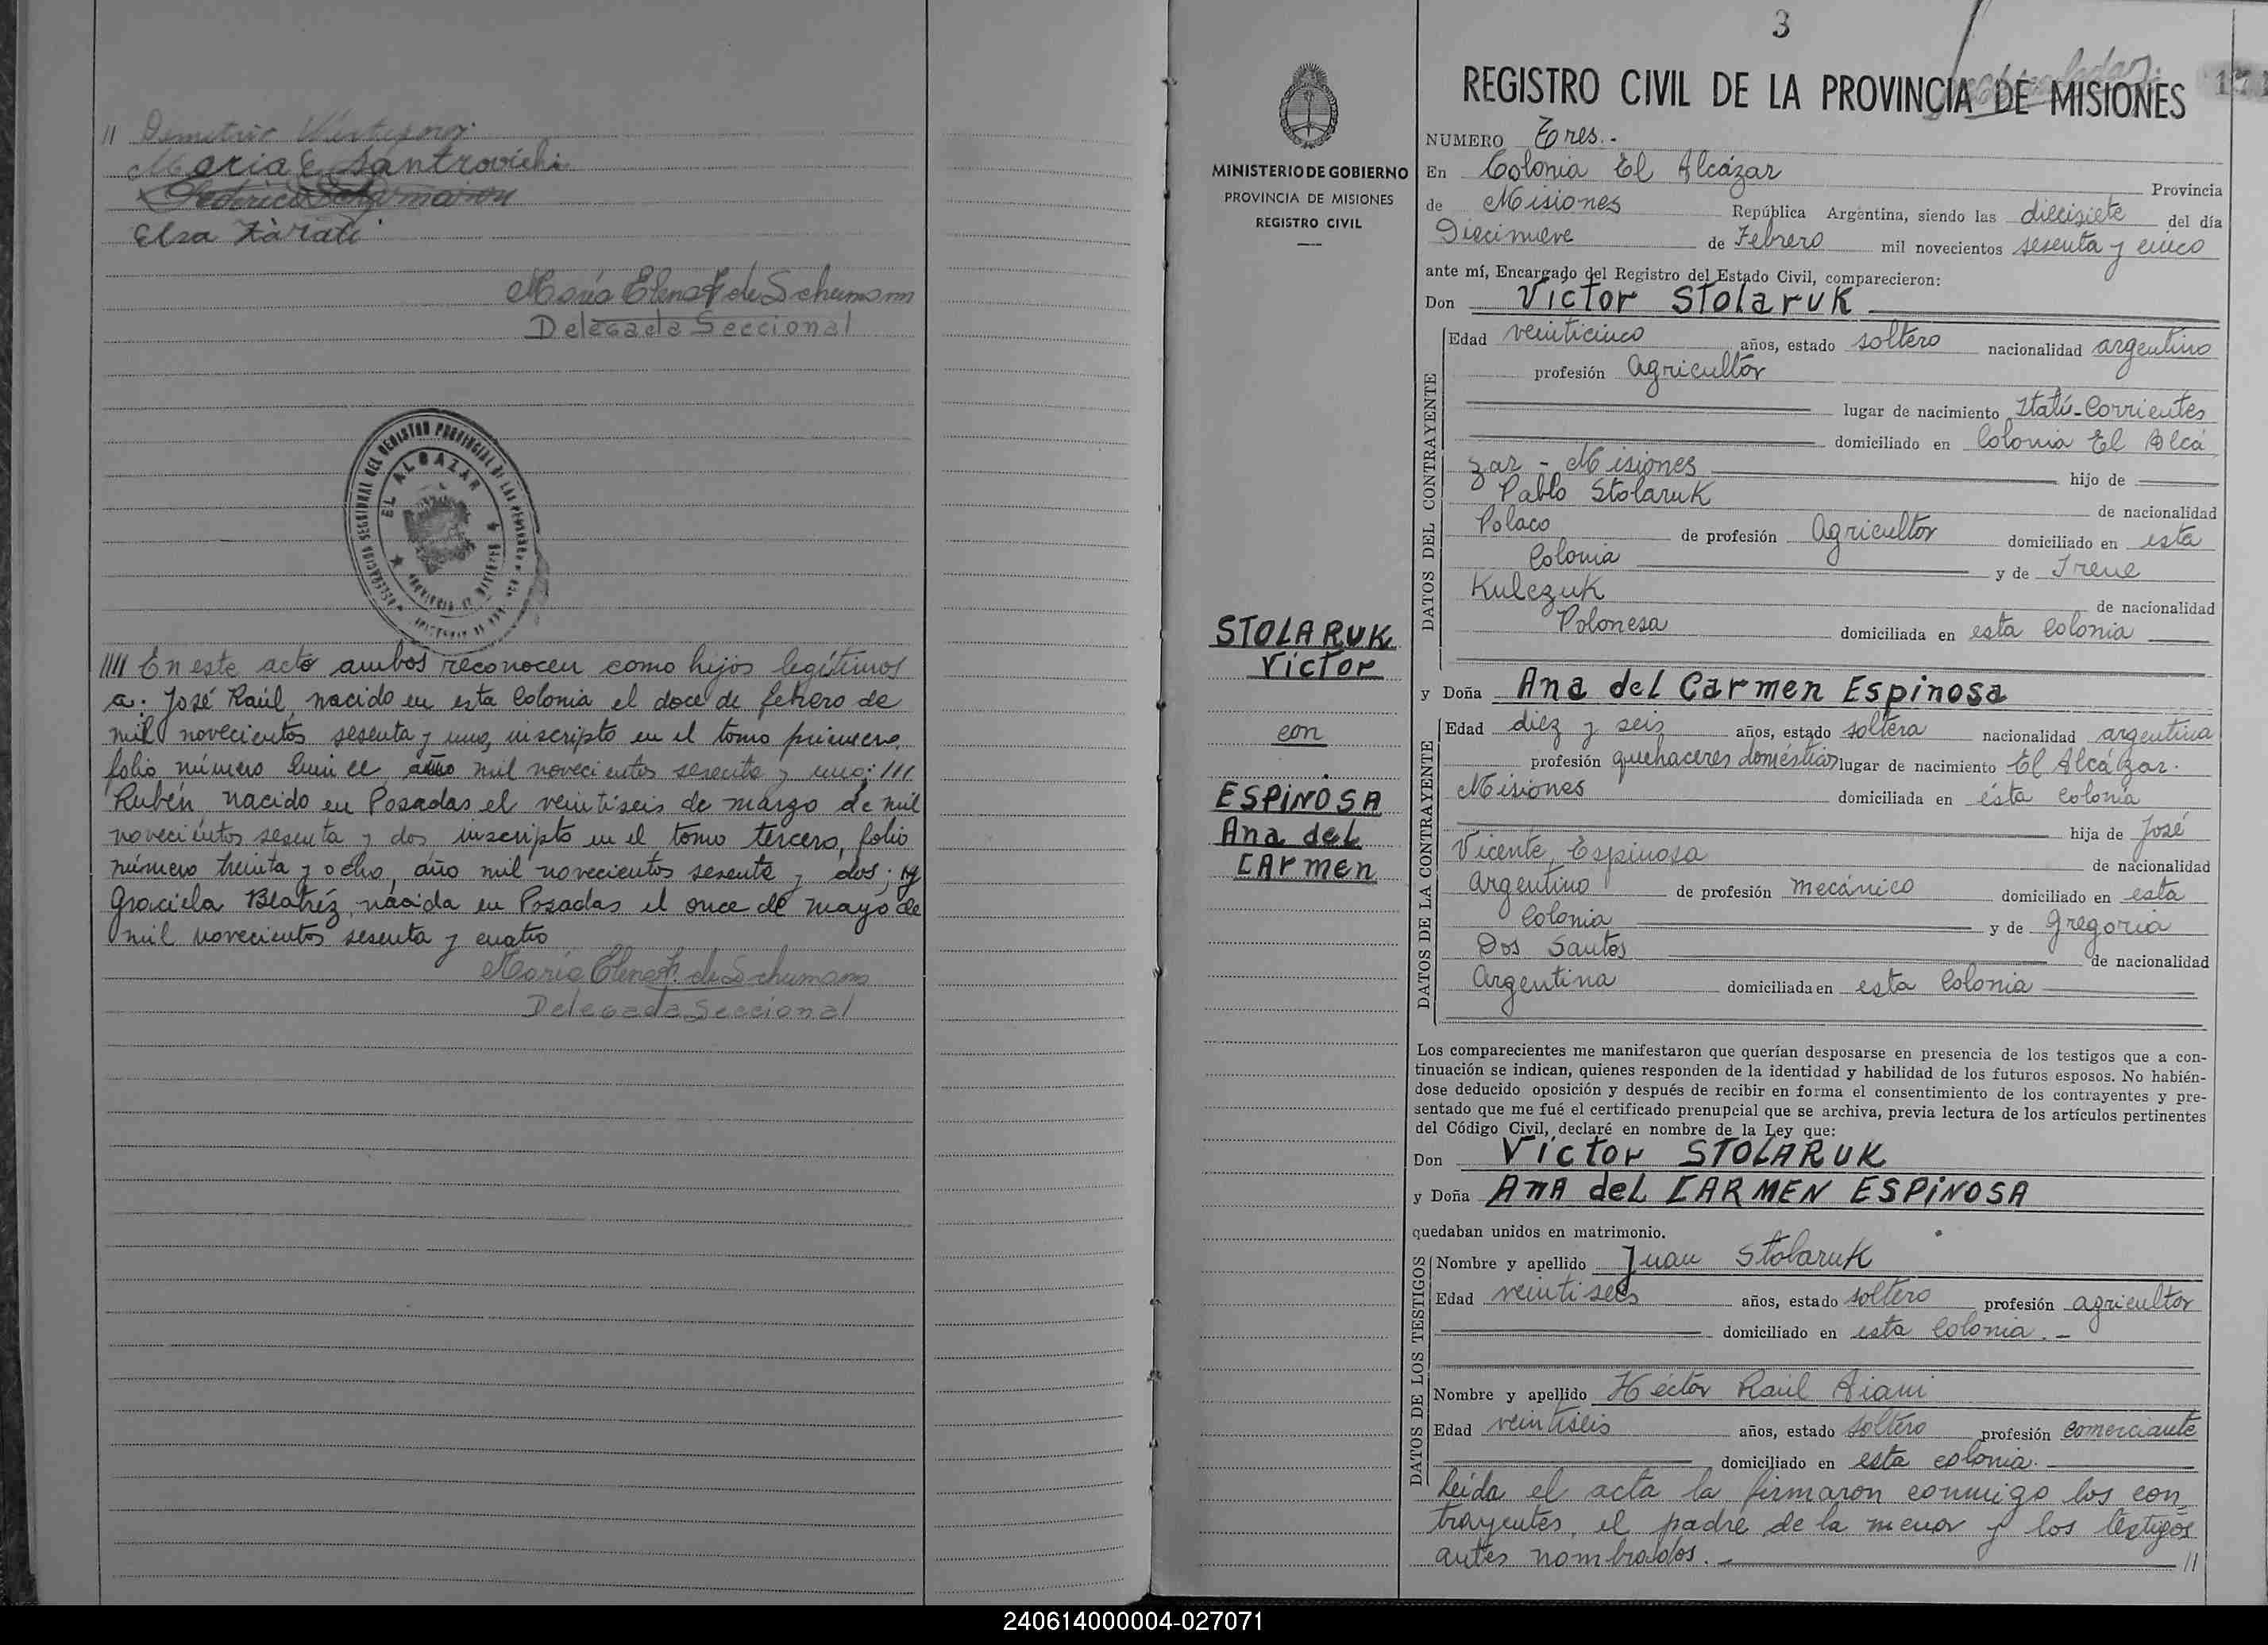 //
Maria E Santrovichi
Elsa Zàrate
María Elena F de Schumann
Delegada Seccional
EL ALCAZAR
//// En este acto ambos reconocen como hijos legítimos
a: José Raúl, nacido en esta Colonia el doce de febrero de
mil novecientos sesenta y uno, inscripto en el tomo primero,
folio número año mil novecientos sesenta y uno; ///
Rubén nacido en Posadas el veintiseis de marzo de mil
novecientos sesenta y dos inscripto en el tomo tercero, folio
número treinta y ocho, año mil novecientos sesenta y dos; y
Graciela Beatréz, nacida en Posadas el once de mayo de
mil novecientos sesenta y cuatro
María Elena F. de Schumann
Delegada Seccional
MINISTERIO DE GOBIERNO
PROVINCIA DE MISIONES
REGISTRO CIVIL
STOLARUK
Víctor
con
ESPINOSA
Ana del
CARmen
3
REGISTRO CIVIL DE LA PROVINCIA DE MISIONES
NUMERO Tres.-
En Colonia El Alcázar Provincia
de Misiones República Argentina, siendo las diecisiete del día
Diecinueve de Febrero mil novecientos sesenta y cinco
ante mí, Encargado del Registro del Estado Civil, comparecieron:
Don Víctor Stolaruk
DATOS DEL CONTRAYENTE
Edad veinticinco años, estado soltero nacionalidad argentino
profesión Agricultor
lugar de nacimiento Itatí-Corrientes
domiciliado en Colonia El Alcá
zar - Misiones hijo de
Pablo Stolaruk de nacionalidad
Polaco de profesión Agricultor domiciliado en esta
Colonia y de Irene
Kulczuk de nacionalidad
Polonesa domiciliada en esta Colonia
y Doña Ana del Carmen Espinosa
DATOS DE LA CONTRAYENTE
Edad diez y seis años, estado soltera nacionalidad argentina
profesión quehaceres domésticos lugar de nacimiento El Alcázar.
Misiones domiciliada en ésta Colonia
hija de José
Vicente Espinosa de nacionalidad
Argentino de profesión mecánico domiciliado en esta
Colonia y de Gregoria
Dos Santos de nacionalidad
Argentina domiciliada en esta Colonia
Los comparecientes me manifestaron que querían desposarse en presencia de los testigos que a con-
tinuación se indican, quienes responden de la identidad y habilidad de los futuros esposos. No habién-
dose deducido oposición y después de recibir en forma el consentimiento de los contrayentes y pre-
sentado que me fué el certificado prenupcial que se archiva, previa lectura de los artículos pertinentes
del Código Civil, declaré en nombre de la Ley que:
Don Víctor STOLARUK
y Doña AnA deL CARMEN ESPINOSA
quedaban unidos en matrimonio.
DATOS DE LOS TESTIGOS
Nombre y apellido Juan Stolaruk
Edad veintiseis años, estado soltero profesión agricultor
domiciliado en esta Colonia.-
Nombre y apellido Héctor Raúl Aiani
Edad veintiseis años, estado soltero profesión comerciante
domiciliado en esta colonia.
Leída el acta la firmaron conmigo los con-
trayentes, el padre de la menor y los testigos
antes nombrados.- //
240614000004-027071